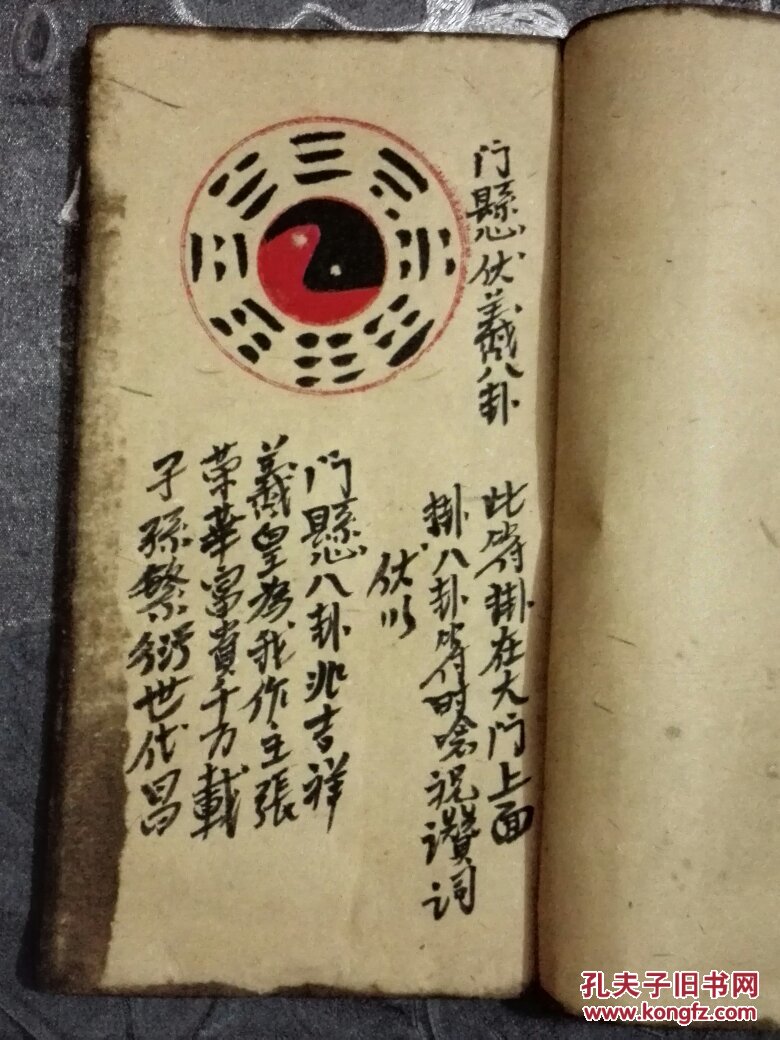 门懸伏羲八卦
此符掛在大门上面
掛八卦符时唸祝讃词
伏以
门懸八卦兆吉祥
羲皇為我作主張
荣華富貴千万載
子孫繁衍世代昌
孔夫子旧书网
www.kongfz.com